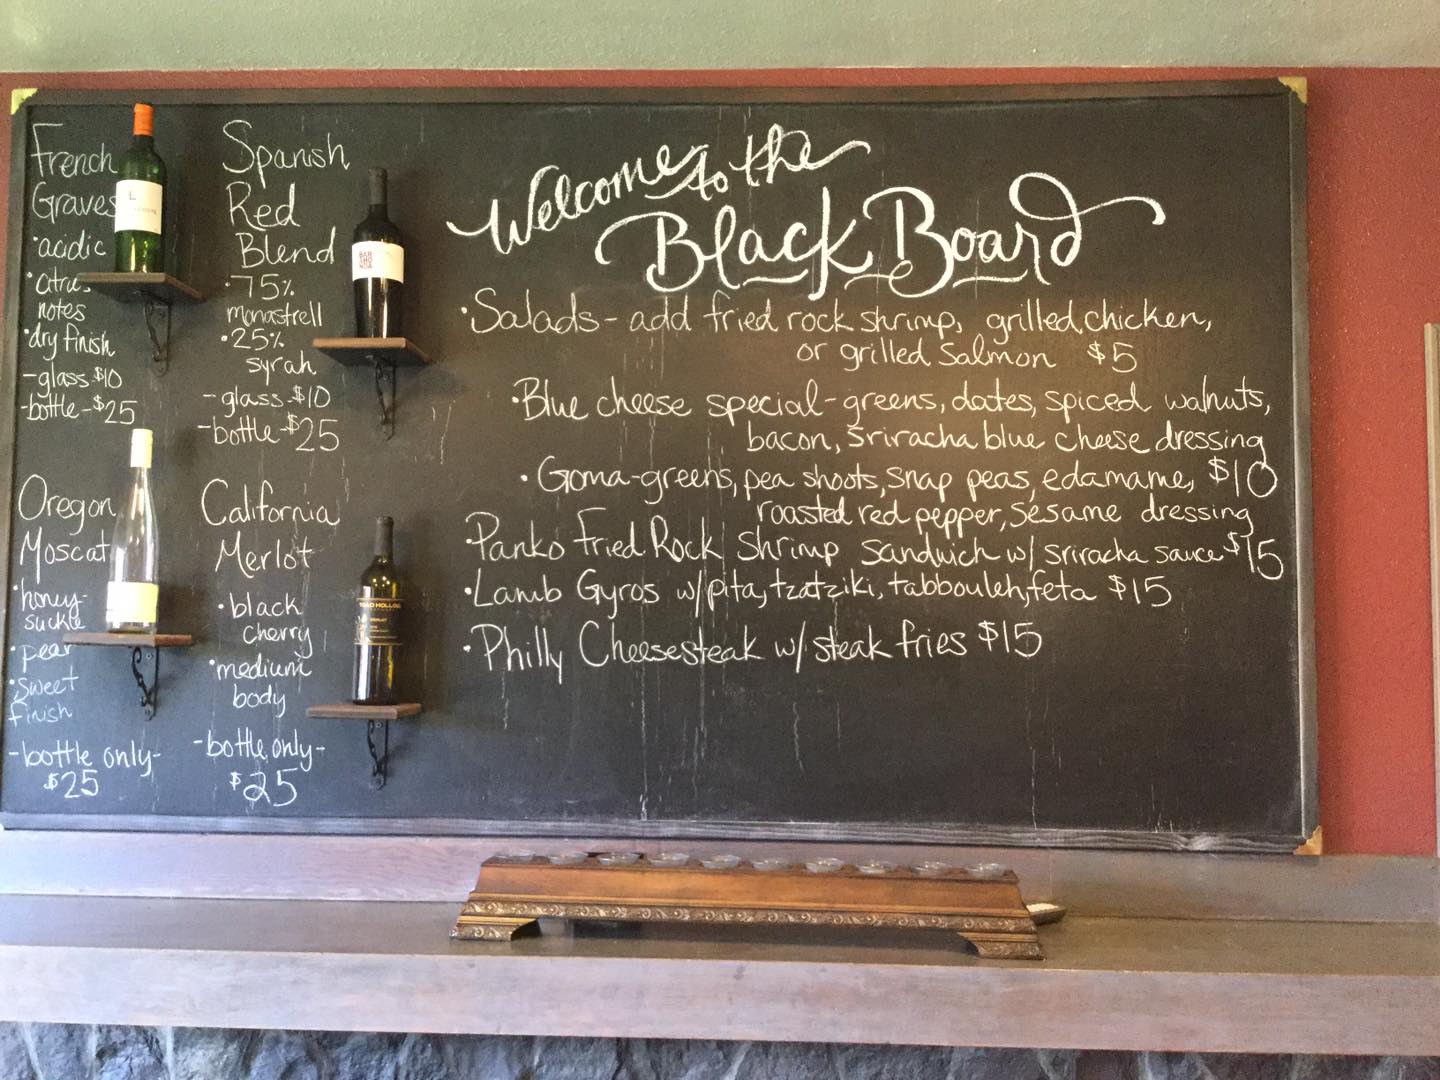 French
Graves
•acidic
•citrus
notes
•dry finish
-glass-$10
-bottle-$25
Spanish
Red
Blend
•75%
monastrell
•25%
syrah
-glass-$10
-bottle-$25
Oregon
Moscat
•honey-
suckle
•pear
•sweet
finish
-bottle only-
$25
California
Merlot
•black
cherry
•medium
body
-bottle only-
$25
Welcome to the
Black Board
•Salads- add fried rock shrimp, grilled chicken,
or grilled salmon $5
•Blue cheese special-greens, dates, spiced walnuts,
bacon, sriracha blue cheese dressing
•Goma-greens, pea shoots, snap peas, edamame, $10
roasted red pepper, sesame dressing
•Panko Fried Rock Shrimp Sandwich w/ sriracha sauce $15
•Lamb Gyros w/pita, tzatziki, tabbouleh, feta $15
•Philly Cheesesteak w/ steak fries $15
L
BAR
AHO
NDA
TOAD HOLLOW
MERLOT